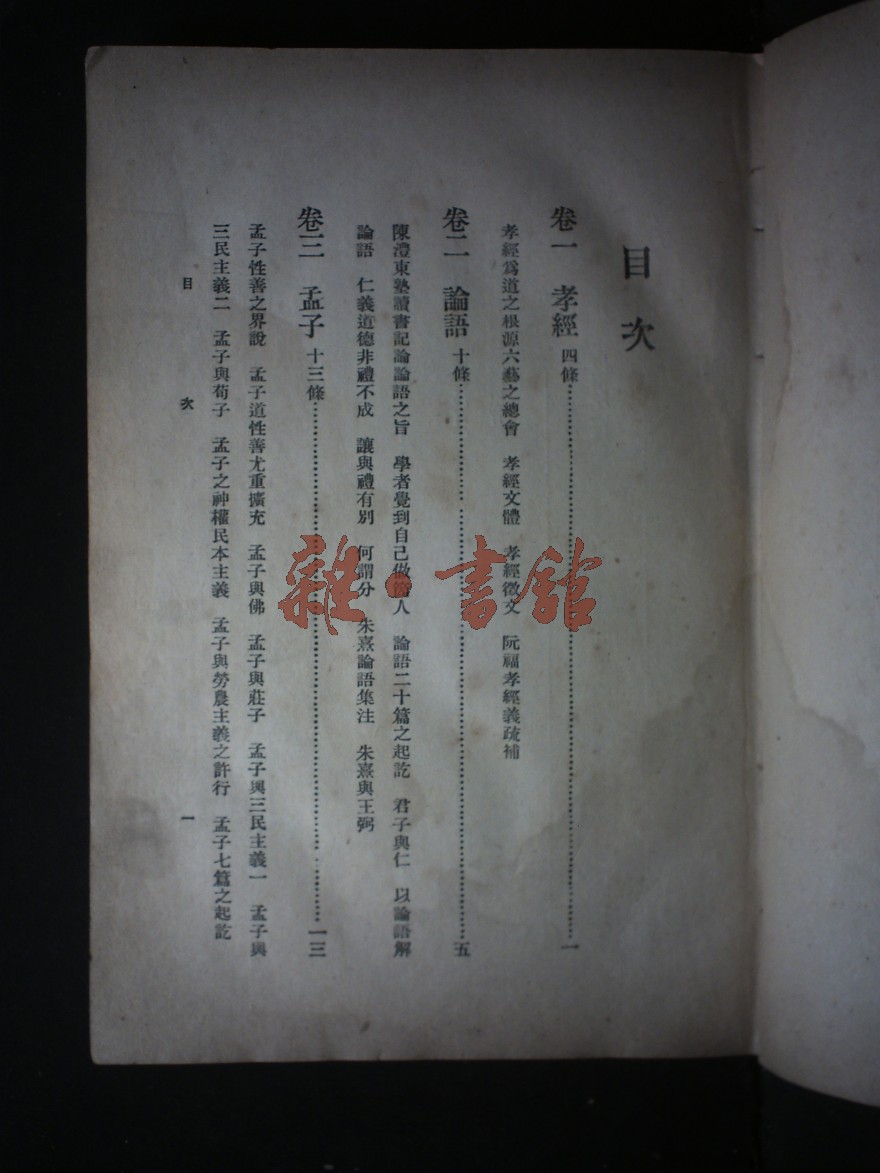 目次
卷一　孝經　四條……一
孝經爲道之根源六藝之總會　孝經文體　孝經徵文　阮福孝經義疏補
卷二　論語　十條……五
陳澧東塾讀書記論論語之旨　學者覺到自己做箇人　論語二十篇之起訖　君子與仁　以論語解
論語　仁義道德非禮不成　讓與禮有別　何謂分　朱熹論語集注　朱熹與王弼
卷三　孟子　十三條……一三
孟子性善之界說　孟子道性善尤重擴充　孟子與佛　孟子與莊子　孟子與三民主義一　孟子與
三民主義二　孟子與荀子　孟子之神權民本主義　孟子與勞農主義之許行　孟子七篇之起訖
目次　一
雜·書館